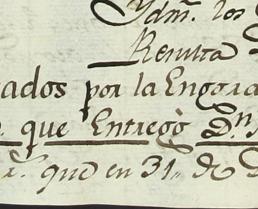 Ydm. los
Resulta
ados por la Engora
que Entregò Dn.
que en 31 de D